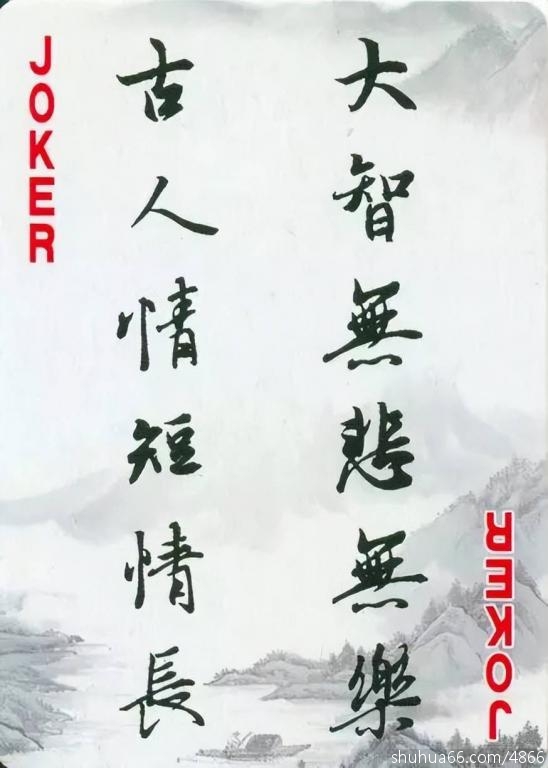 JOKER
大智無悲無樂
古人情短情長
JOKER
shuhua66.com/4866